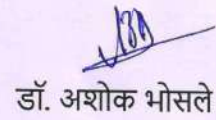 डॉ. अशोक भोसले